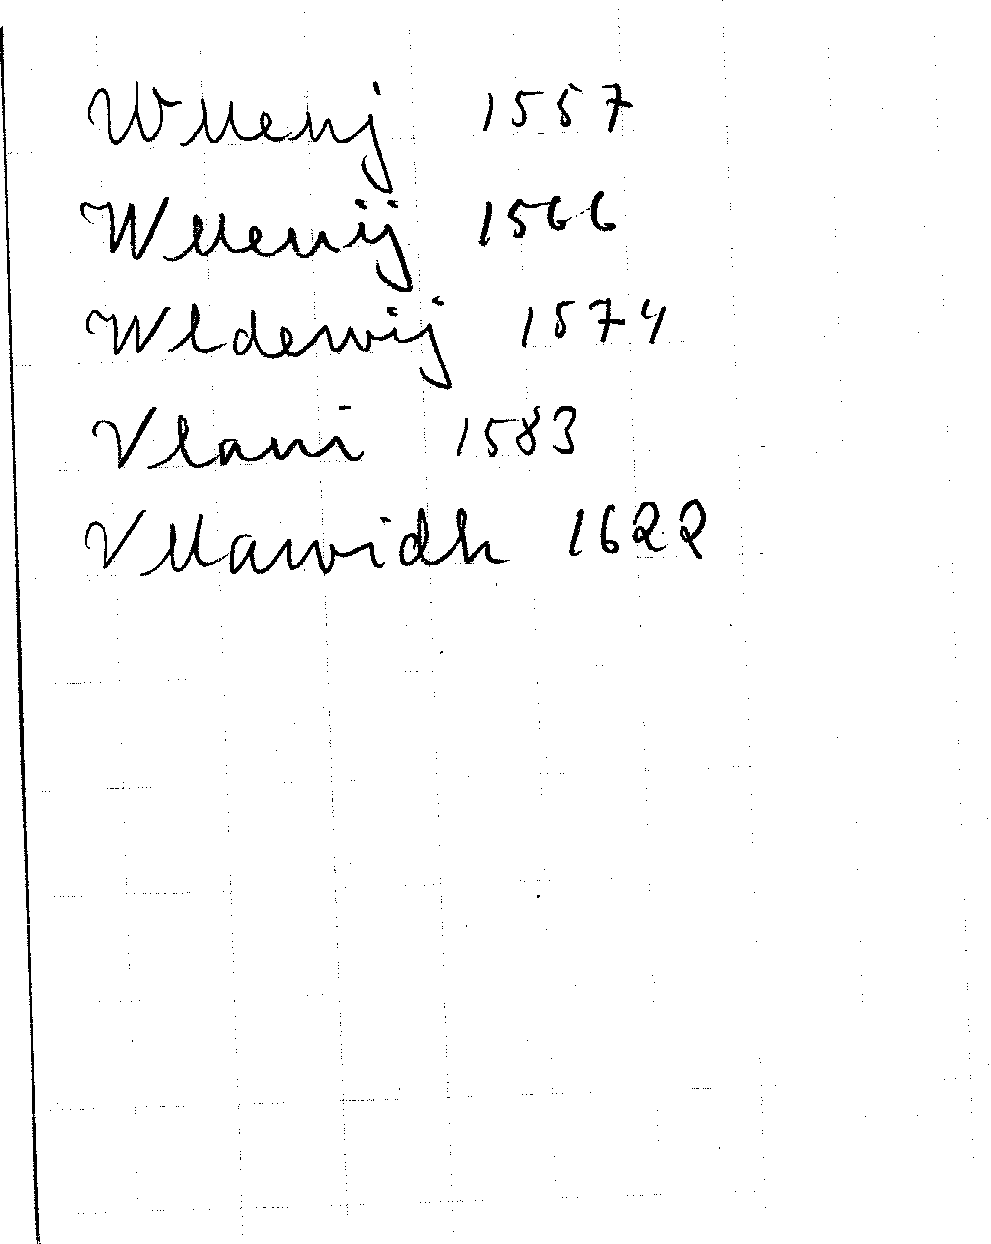 Wlleuj 1557
Wlleuij 1566
Wldewij 1574
Vlaui 1583
Vllawidh 1622